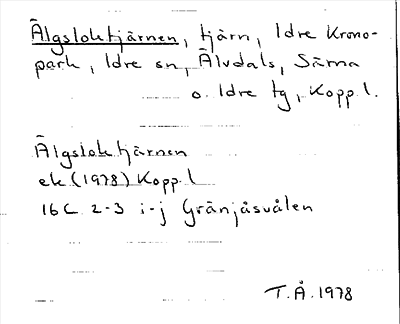 Älgsloktjärnen, tjärn, Idre Krono-
park, Idre sn, Älvdals, Särna
o. Idre tg, Kopp.l.
Älgsloktjärnen
ek (1978) Kopp.l
16C 2-3 i-j Gränjåsvålen
T.Å. 1978